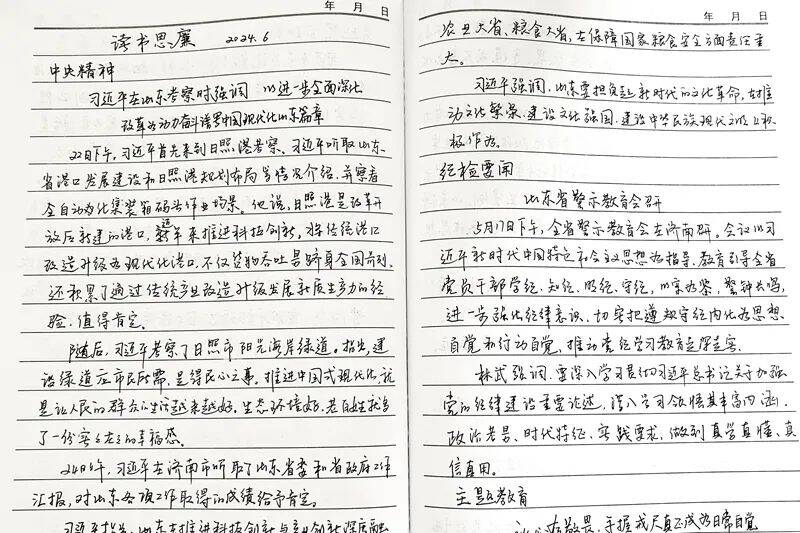 年 月 日
读书思廉 2024.6
中央精神
习近平在山东考察时强调 以进一步全面深化
改革为动力奋斗谱写中国现代化山东篇章
22日下午,习近平首先来到日照港考察。习近平听取山东
省港口发展建设和日照港规划布局等情况介绍,并察看
全自动化集装箱码头作业场景。他说,日照港是改革开
放后新建的港口,近年来推进科技创新,将传统港口
改造升级为现代化港口,不仅货物吞吐量跻身全国前列,
还积累了通过传统产业改造升级发展新质生产力的经
验,值得肯定。
随后,习近平考察了日照市阳光海岸绿道。指出,建
设绿道应市民所需,是得民心之事。推进中国式现代化,就
是让人民的群众的生活越来越好。生态环境好,老百姓就多
了一份实实在在的幸福感。
24日上午,习近平在济南市听取了山东省委和省政府工作
汇报,对山东各项工作取得的成绩给予肯定。
习近平指出,山东在推进科技创新与产业创新深度融
年 月 日
农业大省、粮食大省,在保障国家粮食安全方面责任重
大。
习近平强调,山东要担负起新时代的文化革命,在推
动文化繁荣、建设文化强国、建设中华民族现代文明上积
极作为。
纪检要闻
山东省警示教育会召开
5月17日下午,全省警示教育会在济南召开。会议以习
近平新时代中国特色社会主义思想为指导,教育引导全省
党员干部学纪、知纪、明纪、守纪,以案为鉴,警钟长鸣,
进一步强化纪律意识、切实把遵规守纪内化为思想
自觉和行动自觉,推动党纪学习教育走深走实。
林武强调,要深入学习贯彻习近平总书记关于加强
党的纪律建设重要论述,深入学习领悟其丰富内涵、
政治考量、时代特征、实践要求,做到真学真懂、真
信真用。
主题教育
敬畏、手握戒尺真正成为日常自觉